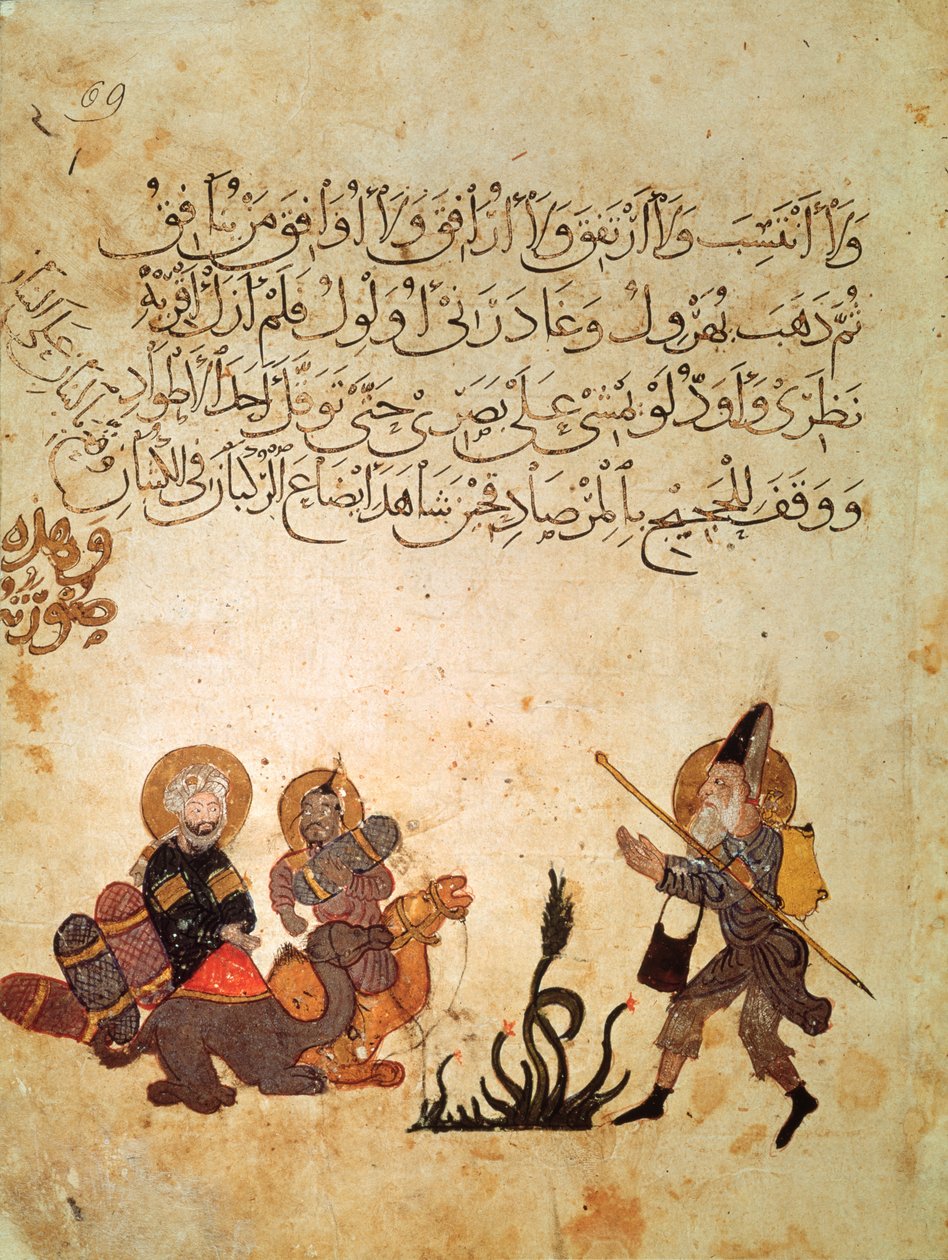 69
وَلَا أَنْتَسِبَ وَلَا أَرْتَفِقَ وَلَا أُرَافِقَ وَلَا أُوَافِقَ مَنْ يُنَافِقُ
ثُمَّ ذَهَبَ يُهَرْوِلُ وَغَادَرَنِي أُوَلْوِلُ فَلَمْ أَزَلْ أَقْرِيْهِ
نَظَرِيْ وَأَوَدُّ لَوْ يَمْشِيْ عَلَى بَصَرِيْ حَتَّى تَوَقَّلَ أَحَدَ الْأَطْوَادِ
وَوَقَفَ لِلْحَجِيْجِ بِالْمِرْصَادِ فَحِيْنَ شَاهَدَ إِيضَاعَ الرُّكْبَانِ فِي الْكُثْبَانِ
وقع بالبنان على البنان
وهذه
صورته